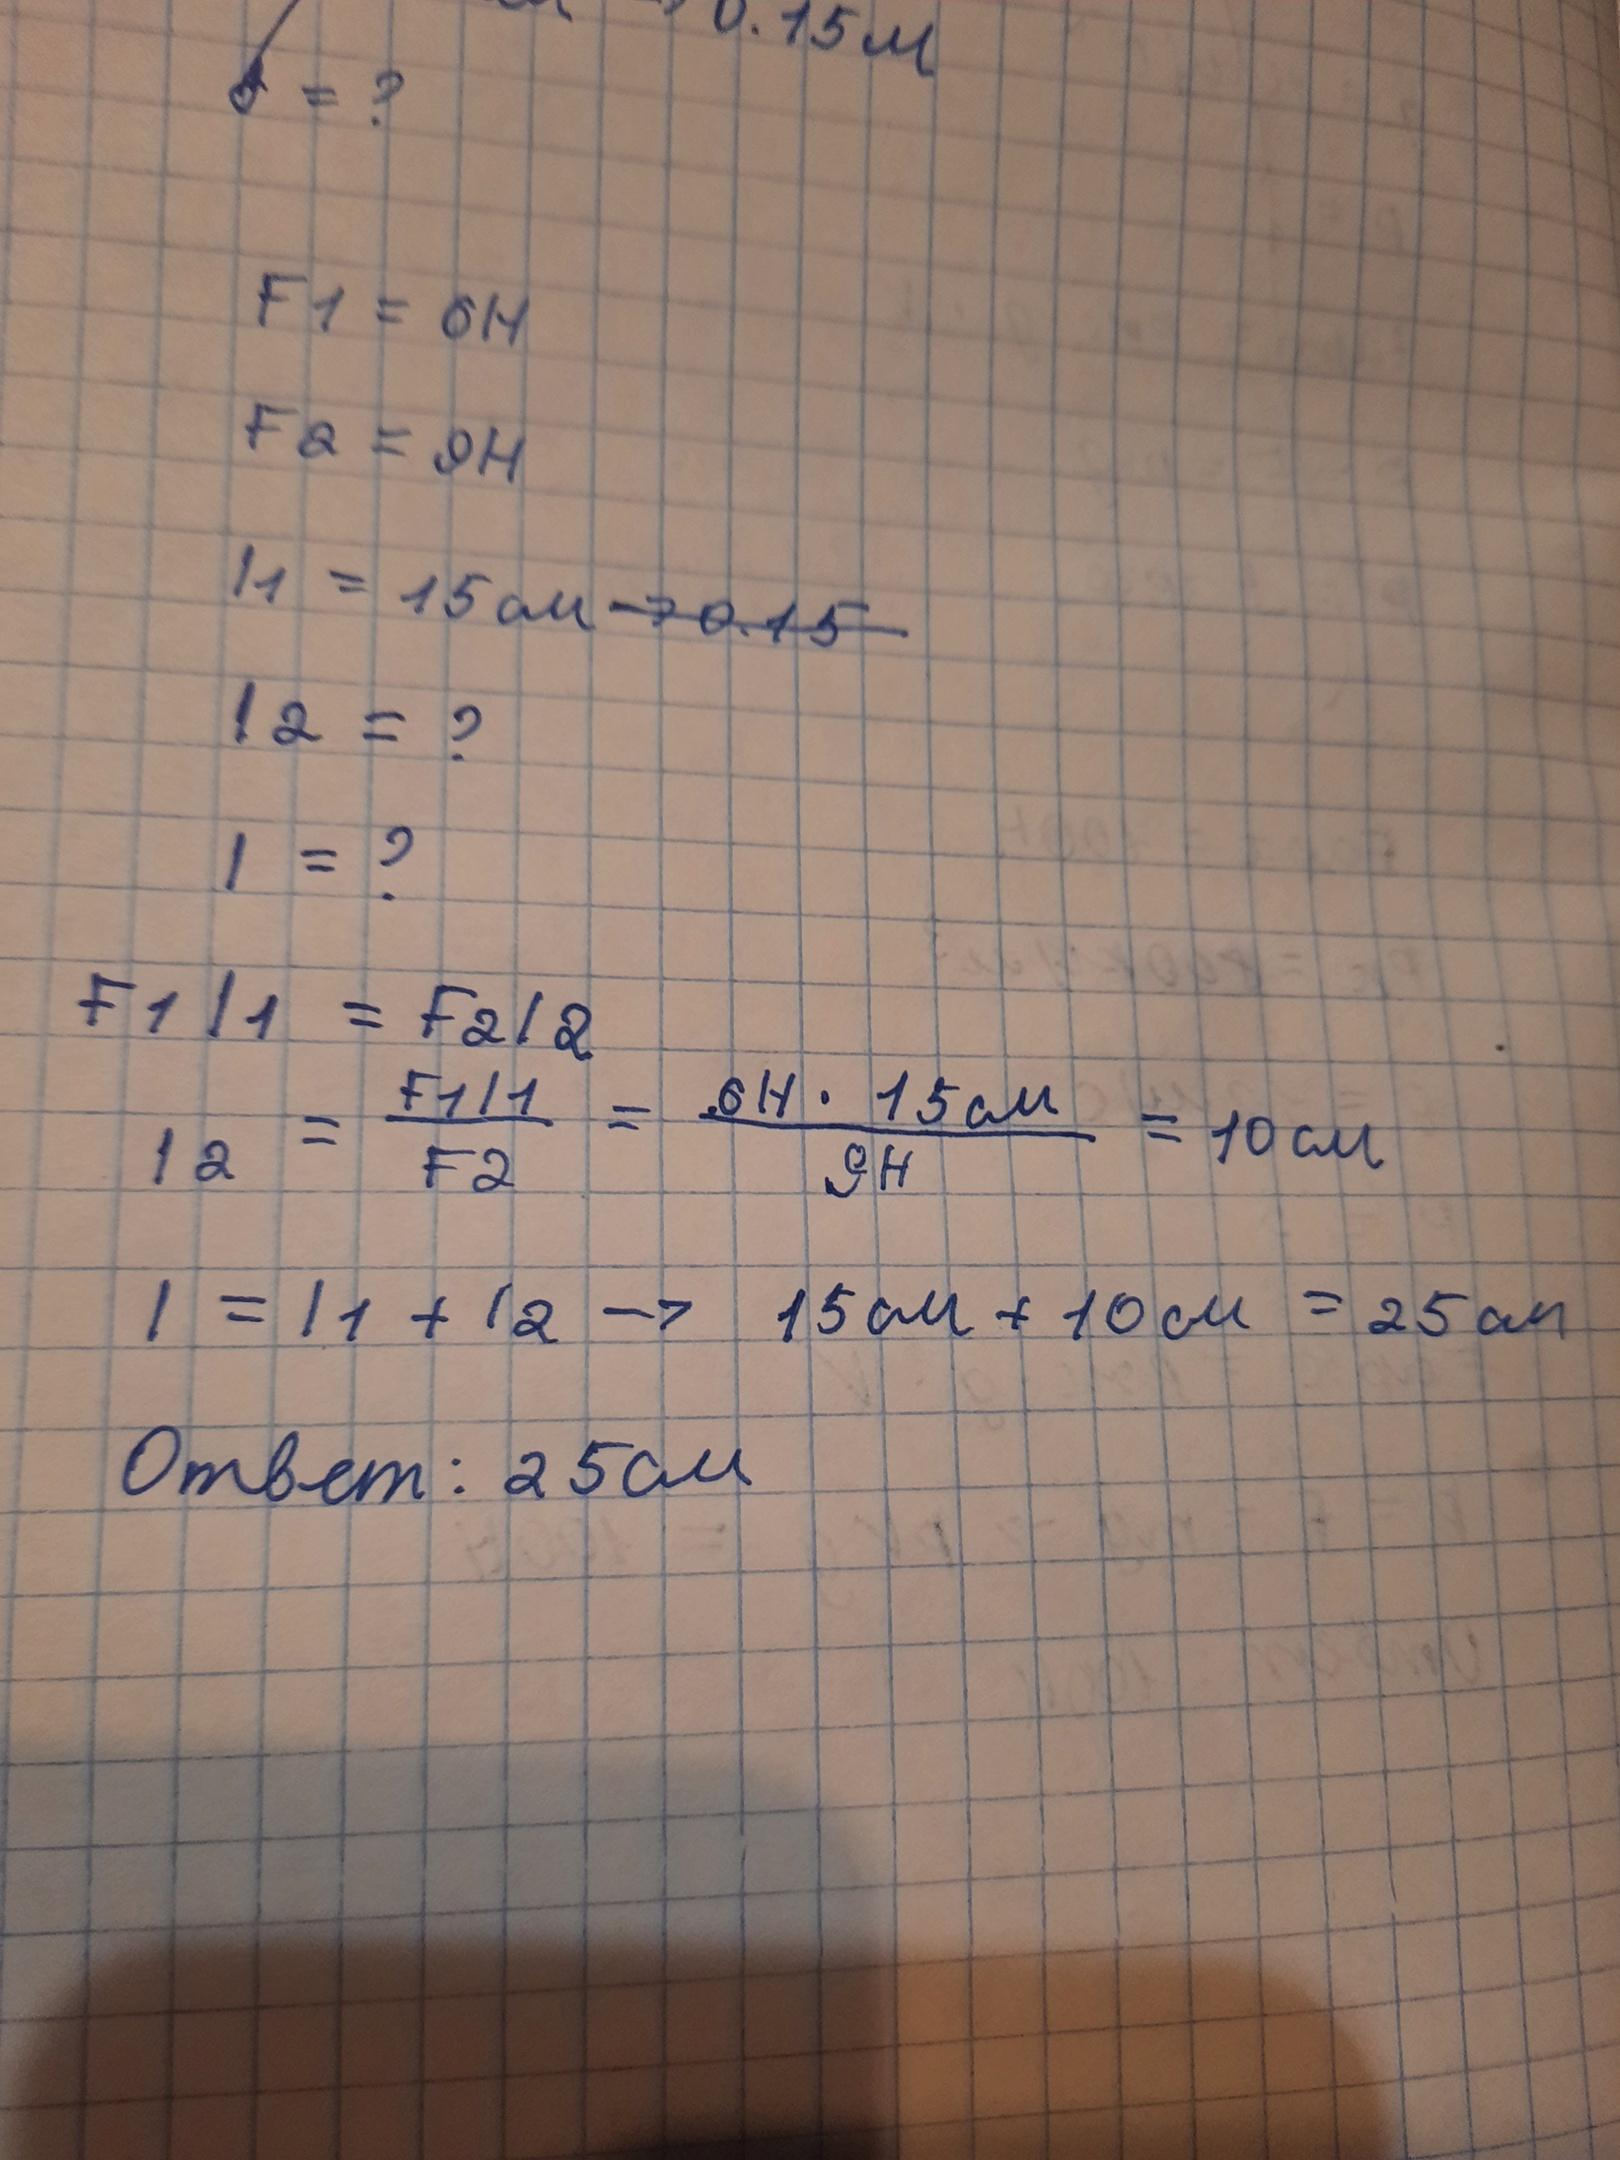 → 0.15м
= ?
F1 = 6Н
F2 = 9Н
l1 = 15см → 0.15
l2 = ?
l = ?
F1 l1 = F2 l2
l2 = F1 l1 / F2 = 6Н · 15см / 9Н = 10см
l = l1 + l2 → 15см + 10см = 25см
Ответ: 25см